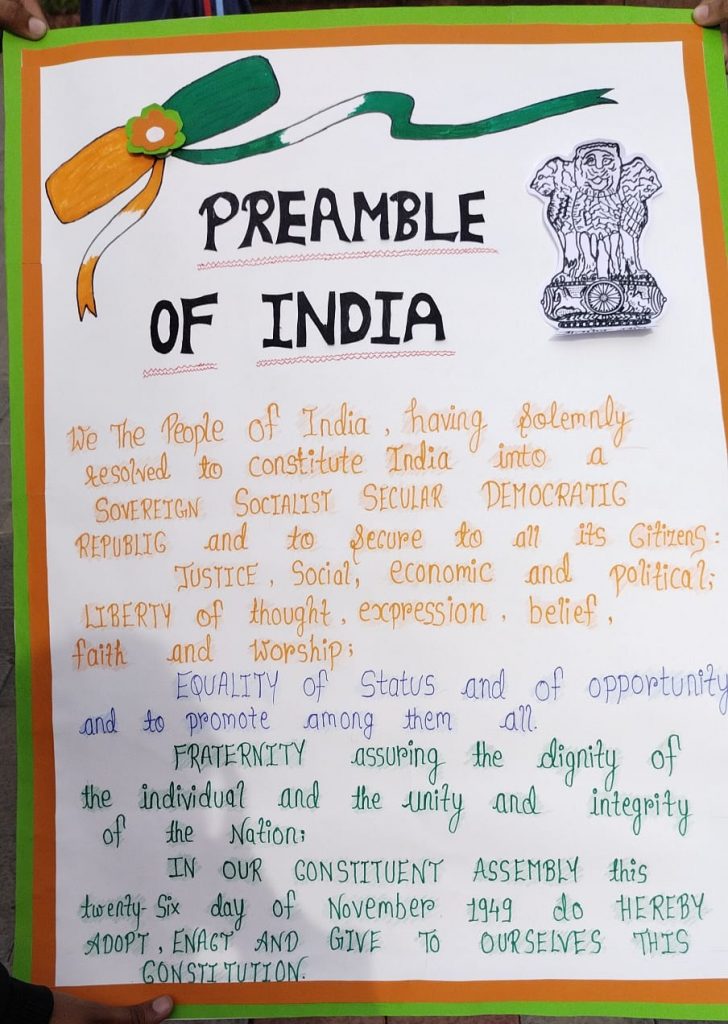 PREAMBLE
OF INDIA
We The People of India, having Solemnly
resolved to constitute India into a
SOVEREIGN SOCIALIST SECULAR DEMOCRATIC
REPUBLIC and to Secure to all its Citizens:
JUSTICE, Social, economic and political;
LIBERTY of thought, expression, belief,
faith and Worship;
EQUALITY of Status and of opportunity
and to promote among them all.
FRATERNITY assuring the dignity of
the individual and the unity and integrity
of the Nation;
IN OUR CONSTITUENT ASSEMBLY this
twenty-Six day of November 1949 do HEREBY
ADOPT, ENACT AND GIVE TO OURSELVES THIS
CONSTITUTION.